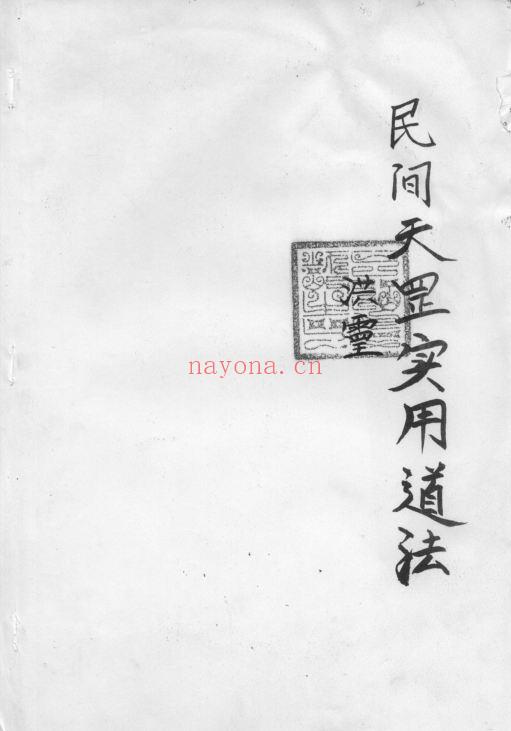 民间天罡实用道法
洪靈
nayona.cn